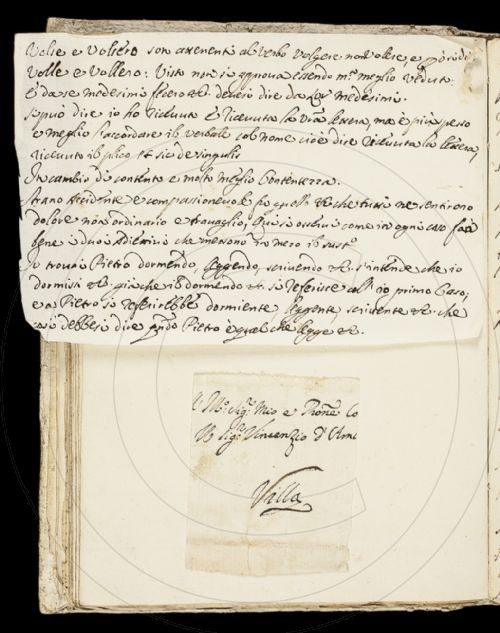 Volse e Volsero son attenenti al verbo Volgere non Volere, e però di
Volle e Vollero: Visto non si approva essendo m.to meglio Veduto.
E da se medesimi fecero etc. devesi dire da lor medesimi.
Si può dire io ho riceuta e riceuuto la Vra lettera, ma è più spesso
e meglio s'accordare il verbale col nome cioè dire riceuuta la lettera,
riceuuto il plico, et sic de singulis
In cambio di contento è molto meglio Contentezza.
Strano Accidente e compassioneuole fu quello che tutti ne sentirono
dolore non ordinario e trauaglio, qui si osserui come in ogni caso
bene i duoi Adiettiui che mettono in mezo il sust.o
Io trouai Pietro dormendo, leggendo, scriuendo etc. s'intende che io
dormissi etc. già che il dormendo etc. si referisce all' io primo Caso,
e a Pietro si referirebbe dormiente leggente scriuente etc. che
così debbesi dire q.ndo Pietro è quel che legge etc.
Sig.r Mio e Pron.e
Sig.r Vincenzio d'
Villa